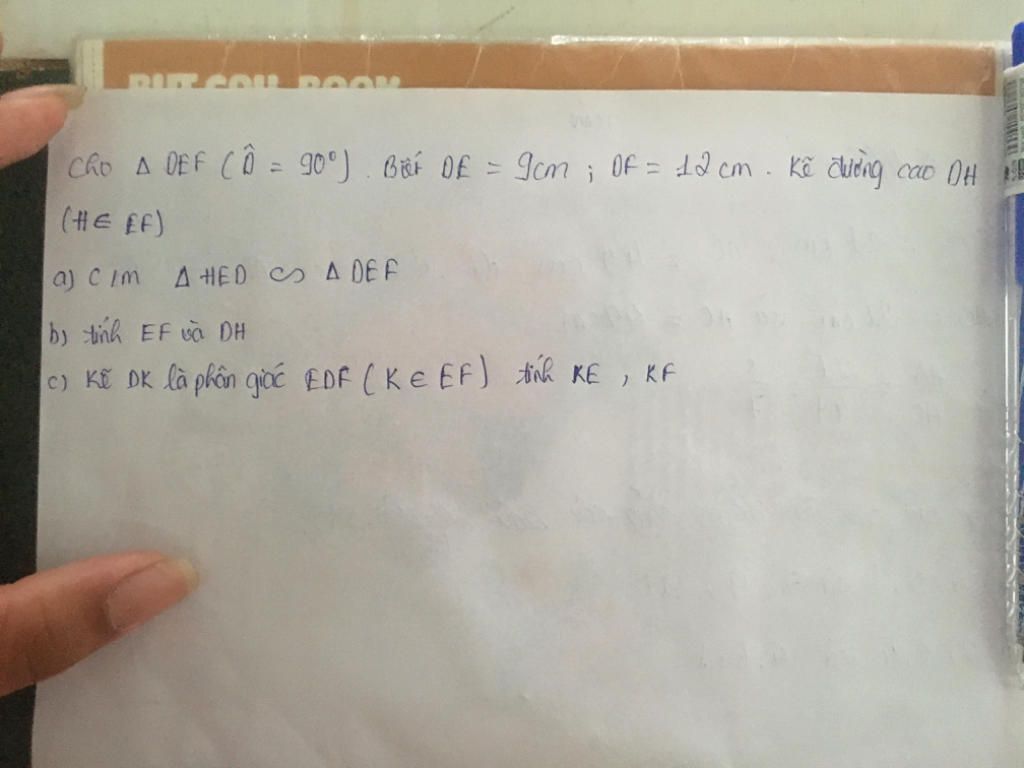 BUT COLL BOOK
Cho Δ DEF ( D̂ = 90°) . Biết DE = 9cm ; DF = 12 cm . Kẽ đường cao DH
(H ∈ EF)
a) C/m Δ HED ∽ Δ DEF
b) tính EF và DH
c) Kẽ DK là phân giác EDF ( K ∈ EF ) tính KE , KF